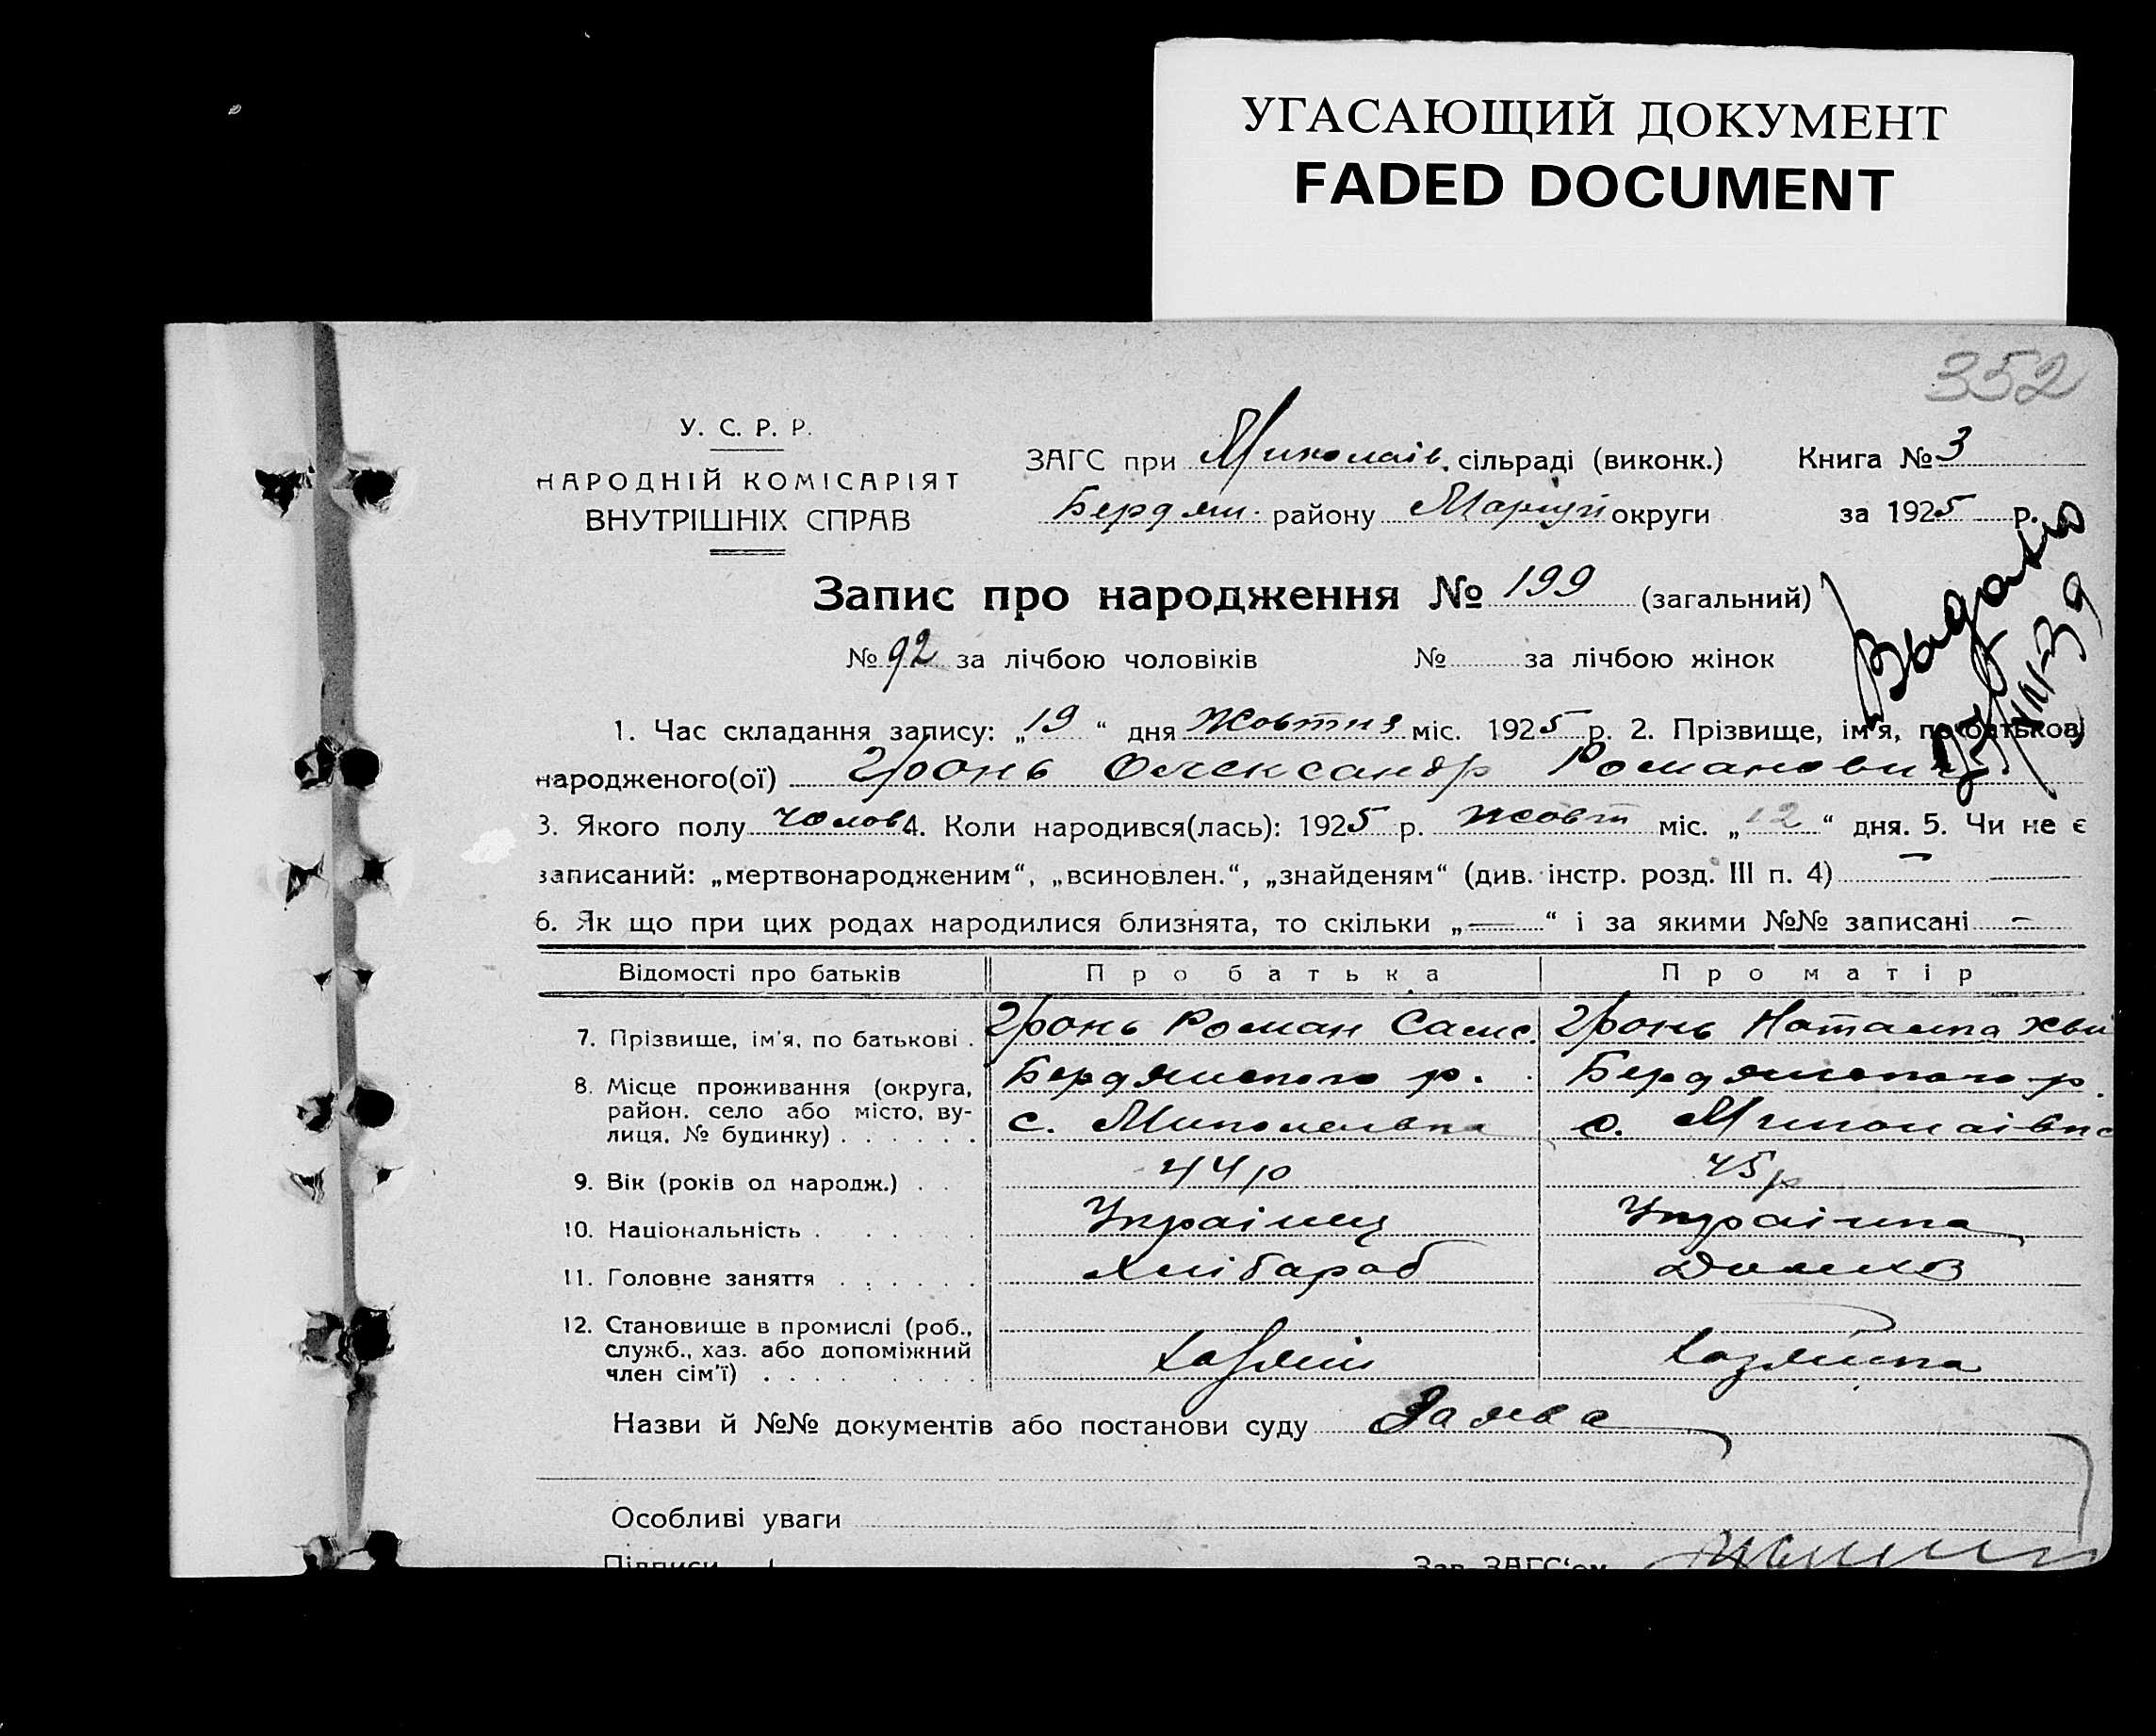 УГАСАЮЩИЙ ДОКУМЕНТ
FADED DOCUMENT
352
У. С. Р. Р.
НАРОДНІЙ КОМІСАРІЯТ
ВНУТРІШНІХ СПРАВ
ЗАГС при Миколаів. сільраді (виконк.) Книга № 3
Бердян. району Маріуп округи за 1925 р.
Выдано
Запис про народження № 199 (загальний)
№ 92 за лічбою чоловіків № за лічбою жінок
1. Час складання запису: „19“ дня Жовтня міс. 1925 р. 2. Прізвище, ім'я, по батькові
народженого(ої) Гронь Олександр Романович
3. Якого полу чолов 4. Коли народився(лась): 1925 р. жовт міс. „12“ дня. 5. Чи не є
записаний: „мертвонародженим“, „всиновлен.“, „знайденям“ (див. інстр. розд. III п. 4) —
6. Як що при цих родах народилися близнята, то скільки „—“ і за якими №№ записані —
Відомості про батьків Про батька Про матір
7. Прізвище, ім'я, по батькові . Гронь Роман Само. Гронь Наталка Хви
8. Місце проживання (округа, район, село або місто, вулиця, № будинку) . . . . . . Бердянского р. Бердянского р.
с. Миколаевка с. Миколаівка
9. Вік (років од народж.) . . 44 р 45 р
10. Національність . . . . . . Українец Українка
11. Головне заняття . . . . . . Хлібароб Домохоз
12. Становище в промислі (роб., служб., хаз. або допоміжний член сім'ї) . . . . Хазяін Хазяйка
Назви й №№ документів або постанови суду Заява
Особливі уваги
Підписи Зав. ЗАГС'ом